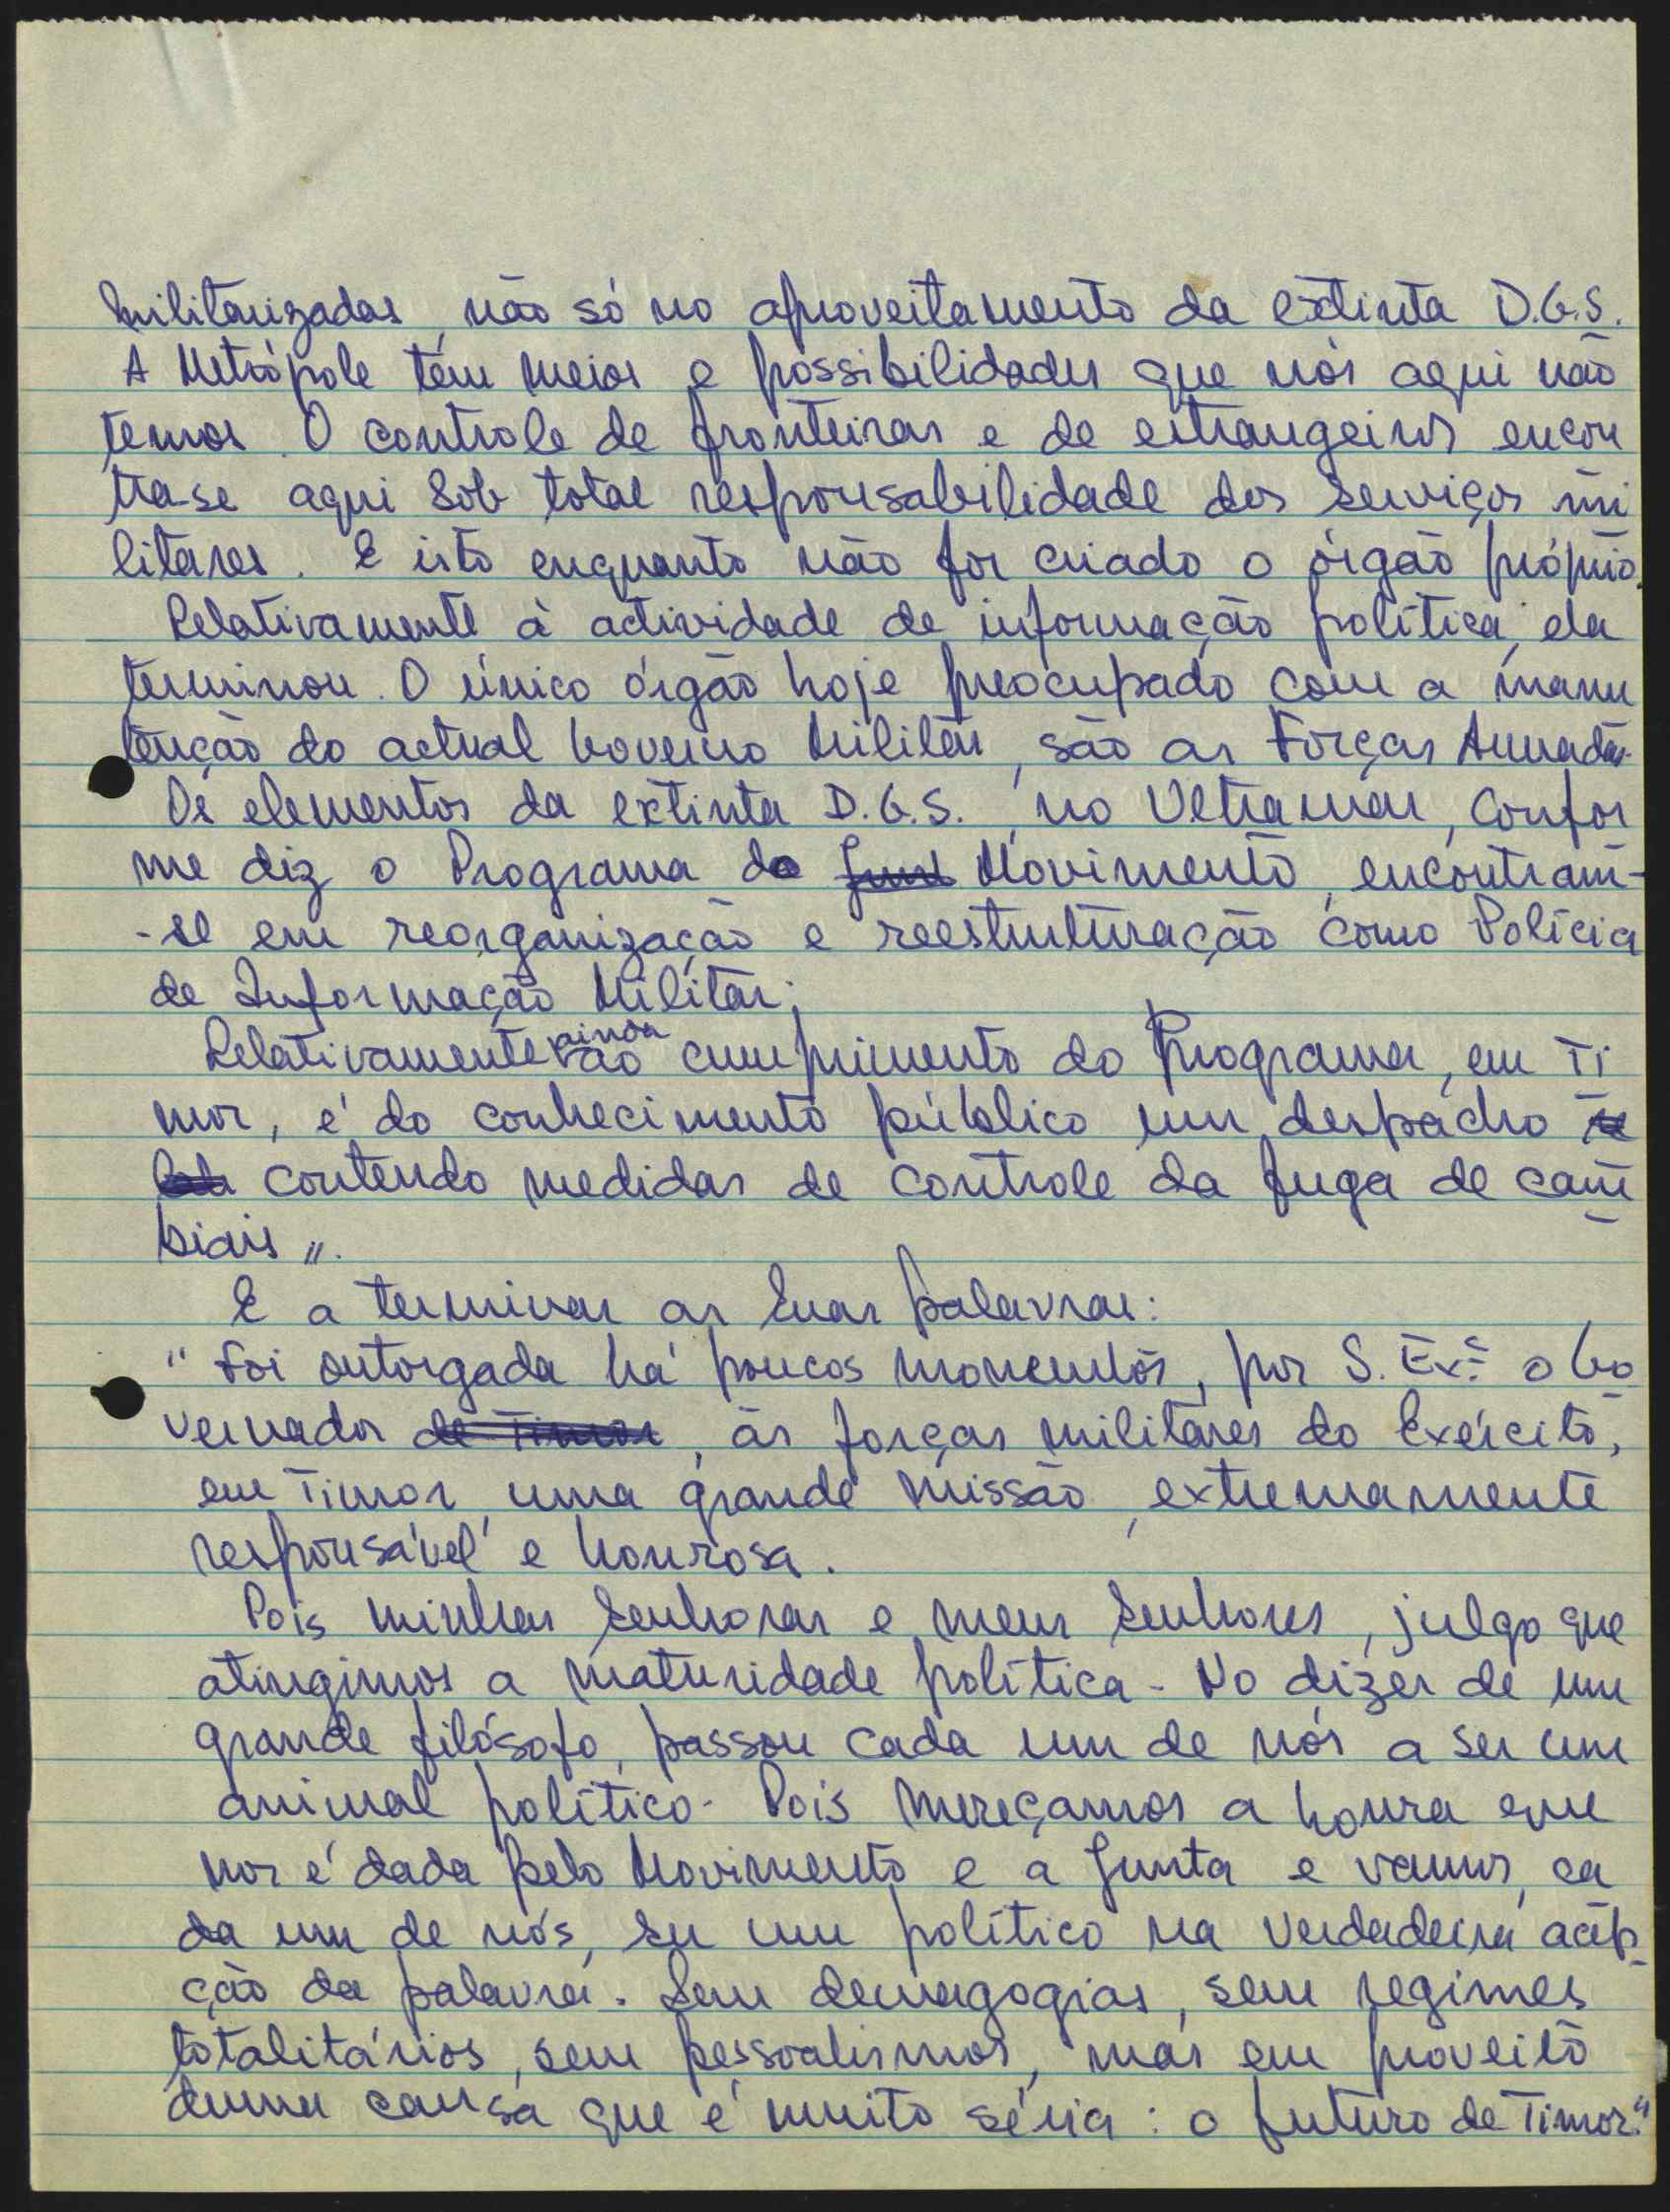 militarizadas, não só no aproveitamento da extinta D.G.S.
A Metrópole tem meios e possibilidades que nós aqui não
temos. O controle de fronteiras e de estrangeiros encon
tra-se aqui sob total responsabilidade dos serviços mi
litares. E isto enquanto não for criado o órgão próprio.
Relativamente à actividade de informação política, ela
terminou. O único órgão hoje preocupado com a manu
tenção do actual Governo Militar, são as Forças Armadas.
Os elementos da extinta D.G.S., no Ultramar, confor
me diz o Programa do Movimento, encontram-
-se em reorganização e reestruturação como Polícia
de Informação Militar;
Relativamente ainda ao cumprimento do Programa, em Ti
mor, é do conhecimento público um despacho
contendo medidas de controle da fuga de cam
biais".
E a terminar as suas palavras:
"Foi outorgada há poucos momentos, por S. Exª o Go
vernador de Timor, às forças militares do Exército,
em Timor, uma grande missão, extremamente
responsável e honrosa.
Pois minhas senhoras e meus senhores, julgo que
atingimos a maturidade política. No dizer de um
grande filósofo, passou cada um de nós a ser um
animal político. Pois mereçamos a honra que
nos é dada pelo Movimento e a Junta e vamos, ca
da um de nós, ser um político na verdadeira acep
ção da palavra. Sem demagogias, sem regimes
totalitários, sem pessoalismos, mas em proveito
duma causa que é muito séria: o futuro de Timor."